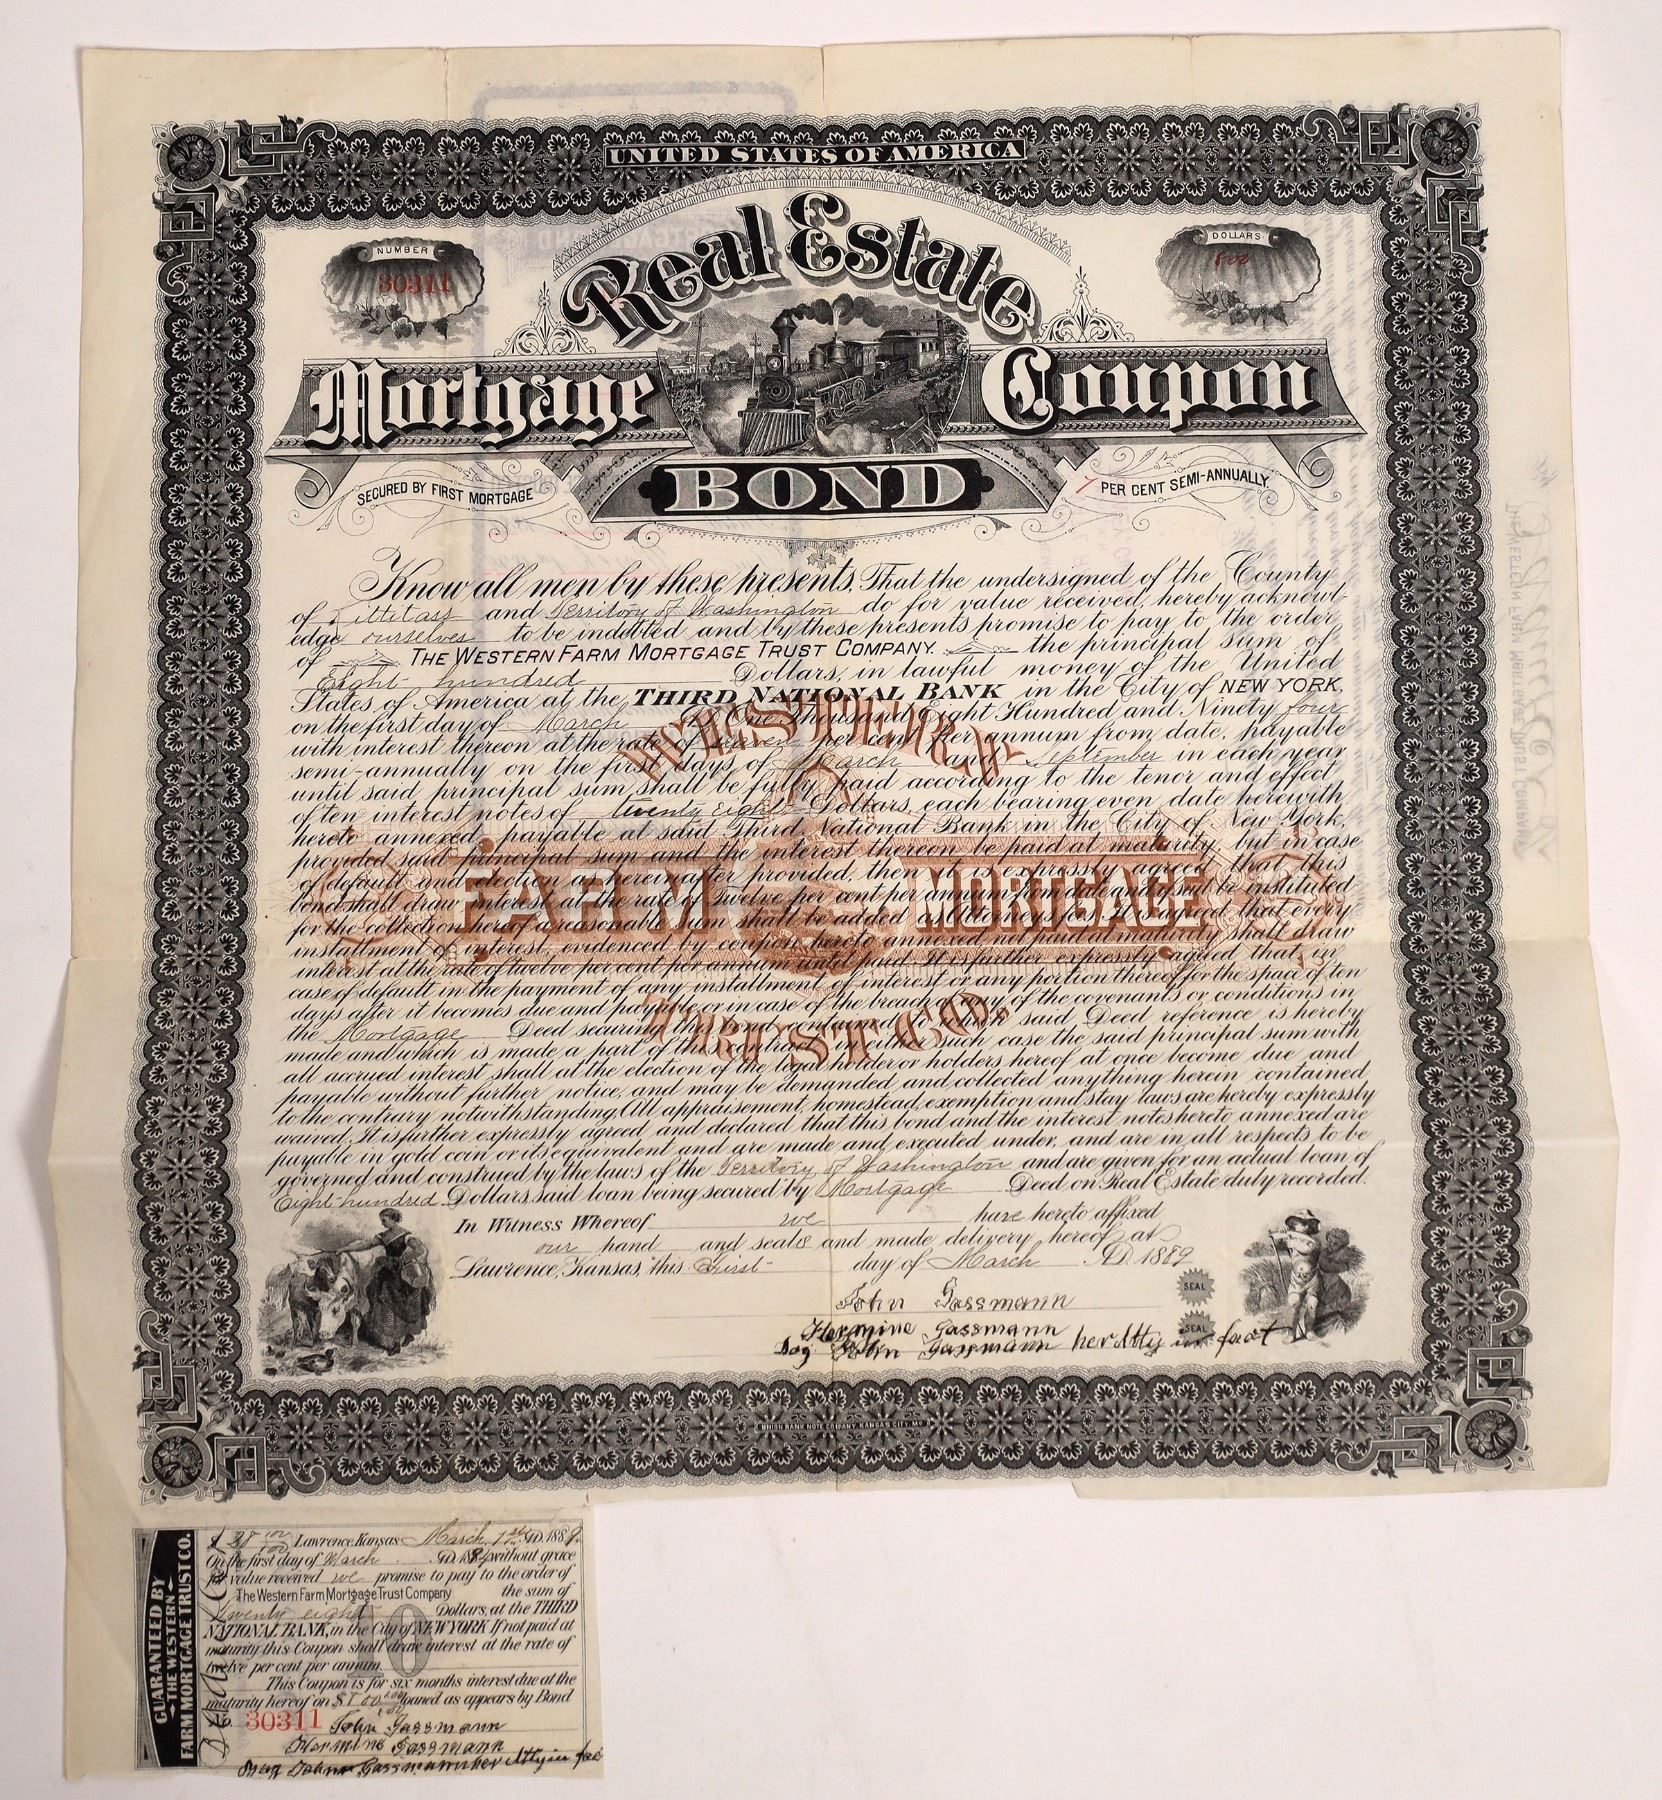 UNITED STATES OF AMERICA
NUMBER
30311
DOLLARS
800
Real Estate
Mortgage Coupon
BOND
SECURED BY FIRST MORTGAGE
7 PER CENT SEMI-ANNUALLY.
Know all men by these presents, That the undersigned of the County
of Kittitass and Territory of Washington do for value received, hereby acknowl-
edge ourselves to be indebted and by these presents promise to pay to the order
of THE WESTERN FARM MORTGAGE TRUST COMPANY. the principal sum of
Eight hundred Dollars, in lawful money of the United
States of America at the THIRD NATIONAL BANK in the City of NEW YORK,
on the first day of March A.D. One Thousand Eight Hundred and Ninety four
with interest thereon at the rate of seven per cent per annum from date, payable
semi-annually on the first days of March and September in each year
until said principal sum shall be fully paid according to the tenor and effect
of ten interest notes of twenty eight Dollars, each bearing even date herewith
hereto annexed, payable at said Third National Bank in the City of New York,
provided said principal sum and the interest thereon be paid at maturity, but in case
of default and election as hereinafter provided, then it is expressly agreed that this
bond shall draw interest at the rate of Twelve per cent per annum from date and if suit be instituted
for the collection hereof a reasonable sum shall be added as Attorneys fees. It is agreed that every
installment of interest, evidenced by coupon hereto annexed, not paid at maturity shall draw
interest at the rate of twelve per cent per annum until paid. It is further expressly agreed that in
case of default in the payment of any installment of interest or any portion thereof for the space of ten
days after it becomes due and payable or in case of the breach of any of the covenants or conditions in
the Mortgage Deed securing this bond contained to which said Deed reference is hereby
made and which is made a part of this contract, in either such case the said principal sum with
all accrued interest shall at the election of the legal holder or holders hereof at once become due and
payable without further notice, and may be demanded and collected anything herein contained
to the contrary notwithstanding. All appraisement, homestead, exemption and stay laws are hereby expressly
waived. It is further expressly agreed and declared that this bond and the interest notes hereto annexed are
payable in gold coin or its equivalent and are made and executed under, and are in all respects to be
governed and construed by the laws of the Territory of Washington and are given for an actual loan of
Eight hundred Dollars, said loan being secured by Mortgage Deed on Real Estate duly recorded.
THE WESTERN
FARM MORTGAGE
TRUST CO.
In Witness Whereof we have hereto affixed
our hand and seals and made delivery hereof at
Lawrence, Kansas, this First day of March A.D. 1889
John Gassmann SEAL
Hermine Gassmann SEAL
by John Gassmann her Atty in fact
UNION BANK NOTE COMPANY, KANSAS CITY, MO.
GUARANTEED BY
THE WESTERN
FARM MORTGAGE TRUST CO.
$ 28 00/100 Lawrence, Kansas March 1st A.D. 1889.
On the first day of March A.D. 1894 without grace
for value received we promise to pay to the order of
The Western Farm Mortgage Trust Company the sum of
Twenty eight Dollars, at the THIRD
NATIONAL BANK, in the City of NEW YORK. If not paid at
maturity this Coupon shall draw interest at the rate of
twelve per cent per annum.
10
This Coupon is for six months interest due at the
maturity hereof on $800 00/100 loaned as appears by Bond
No. 30311 John Gassmann
Hermine Gassmann
by John Gassmann her Atty in fac